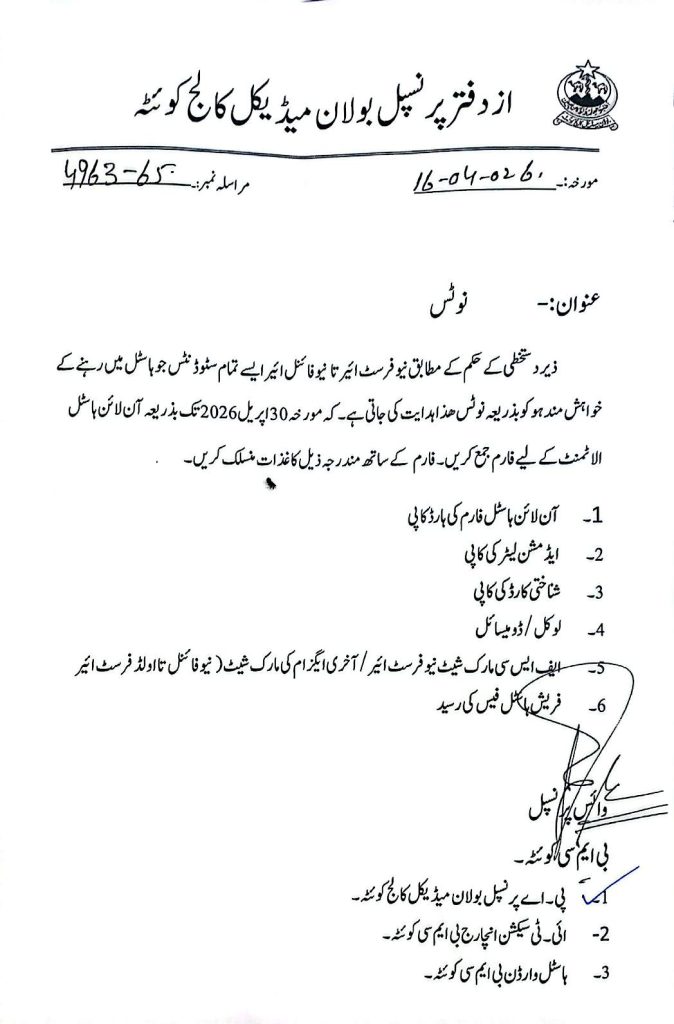 از دفتر پرنسپل بولان میڈیکل کالج کوئٹہ
مورخہ:۔ 16-04-026. مراسلہ نمبر:۔ 4963-65.
عنوان:- نوٹس
ذیر دستخطی کے حکم کے مطابق نیو فرسٹ ائیر تا نیو فائنل ائیر ایسے تمام سٹوڈنٹس جو ہاسٹل میں رہنے کے
خواہش مند ہو کو بذریعہ نوٹس ھذا ہدایت کی جاتی ہے۔ کہ مورخہ 30 اپریل 2026 تک بذریعہ آن لائن ہاسٹل
الاٹمنٹ کے لیے فارم جمع کریں۔ فارم کے ساتھ مندرجہ ذیل کاغذات منسلک کریں۔
1۔ آن لائن ہاسٹل فارم کی ہارڈ کاپی
2۔ ایڈمشن لیٹر کی کاپی
3۔ شناختی کارڈ کی کاپی
4۔ لوکل / ڈومیسائل
5۔ ایف ایس سی مارک شیٹ نیو فرسٹ ائیر / آخری ایگزام کی مارک شیٹ ( نیو فائنل تا اولڈ فرسٹ ائیر
6۔ فریش ہاسٹل فیس کی رسید
وائس پرنسپل
بی ایم سی کوئٹہ۔
1۔ پی۔اے پرنسپل بولان میڈیکل کالج کوئٹہ۔
2- ائی۔ٹی سیکشن انچارج بی ایم سی کوئٹہ۔
3۔ ہاسٹل وارڈن بی ایم سی کوئٹہ۔